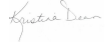 Kristine Dean